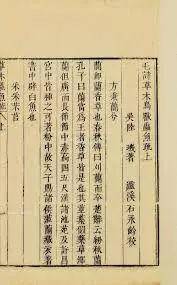 毛詩草木鳥獸蟲魚疏上
吳 陸 璣 石永齡校
方秉蕑兮
蕑即蘭香草也春秋傳曰刈蘭而卒楚辭云紉秋蘭
孔子曰蘭當為王者香草皆是也其莖葉似藥草澤
蘭但廣而長節節中赤高四五尺漢諸池苑及許昌
宮中皆種之可著粉中故天子賜諸侯茝蘭藏衣著
書中辟白魚也
采采芣苢